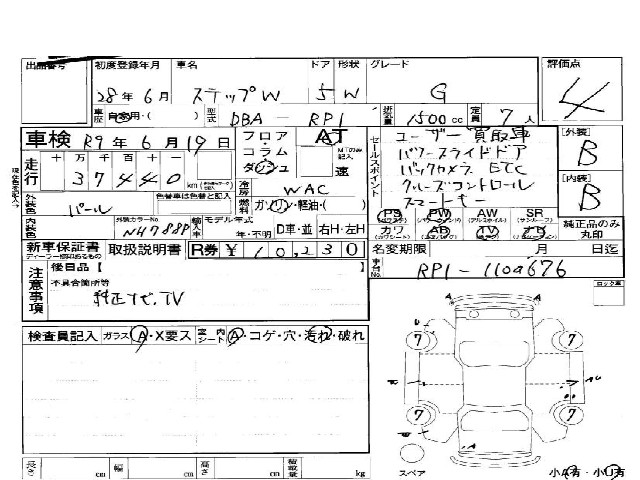 出品番号 初度登録年月 車名 ドア 形状 グレード 評価点
28年6月 ステップW 5 W G 4
車歴 自家用・( ) 型式 DBA - RP1 排気量 1500cc 定員 7人
車検 R9年6月19日 フロア・コラム・ダッシュ AT MTのみ記入 速
走行 十万千百十一 37440 km
冷房 WAC
燃料 ガソリン・軽油・( )
セールスポイント
ユーザー買取車
パワースライドドア
バックカメラ ETC
クルーズコントロール
スマートキー
[外装] B
[内装] B
外装色 パール 色替車は色替と記入
PS PW AW SR
カワ AB TV ナビ
純正品のみ丸印
内装色 外装カラーNo NH788P 輸入車 モデル年式 年・不明 D車・並 右H・左H
新車保証書 取扱説明書 R券 ¥ 10,230
名変期限 月 日迄
車台No. RP1-1109676
注意事項 後日品【 】
不具合箇所等
純正ナビ、TV
ロック車
検査員記入 ガラス A・X要ス 室内シート A・コゲ・穴・汚れ・破れ
7 7
7 7
長さ cm 幅 cm 高さ cm 積載量 kg
スペア 小A有・小U有